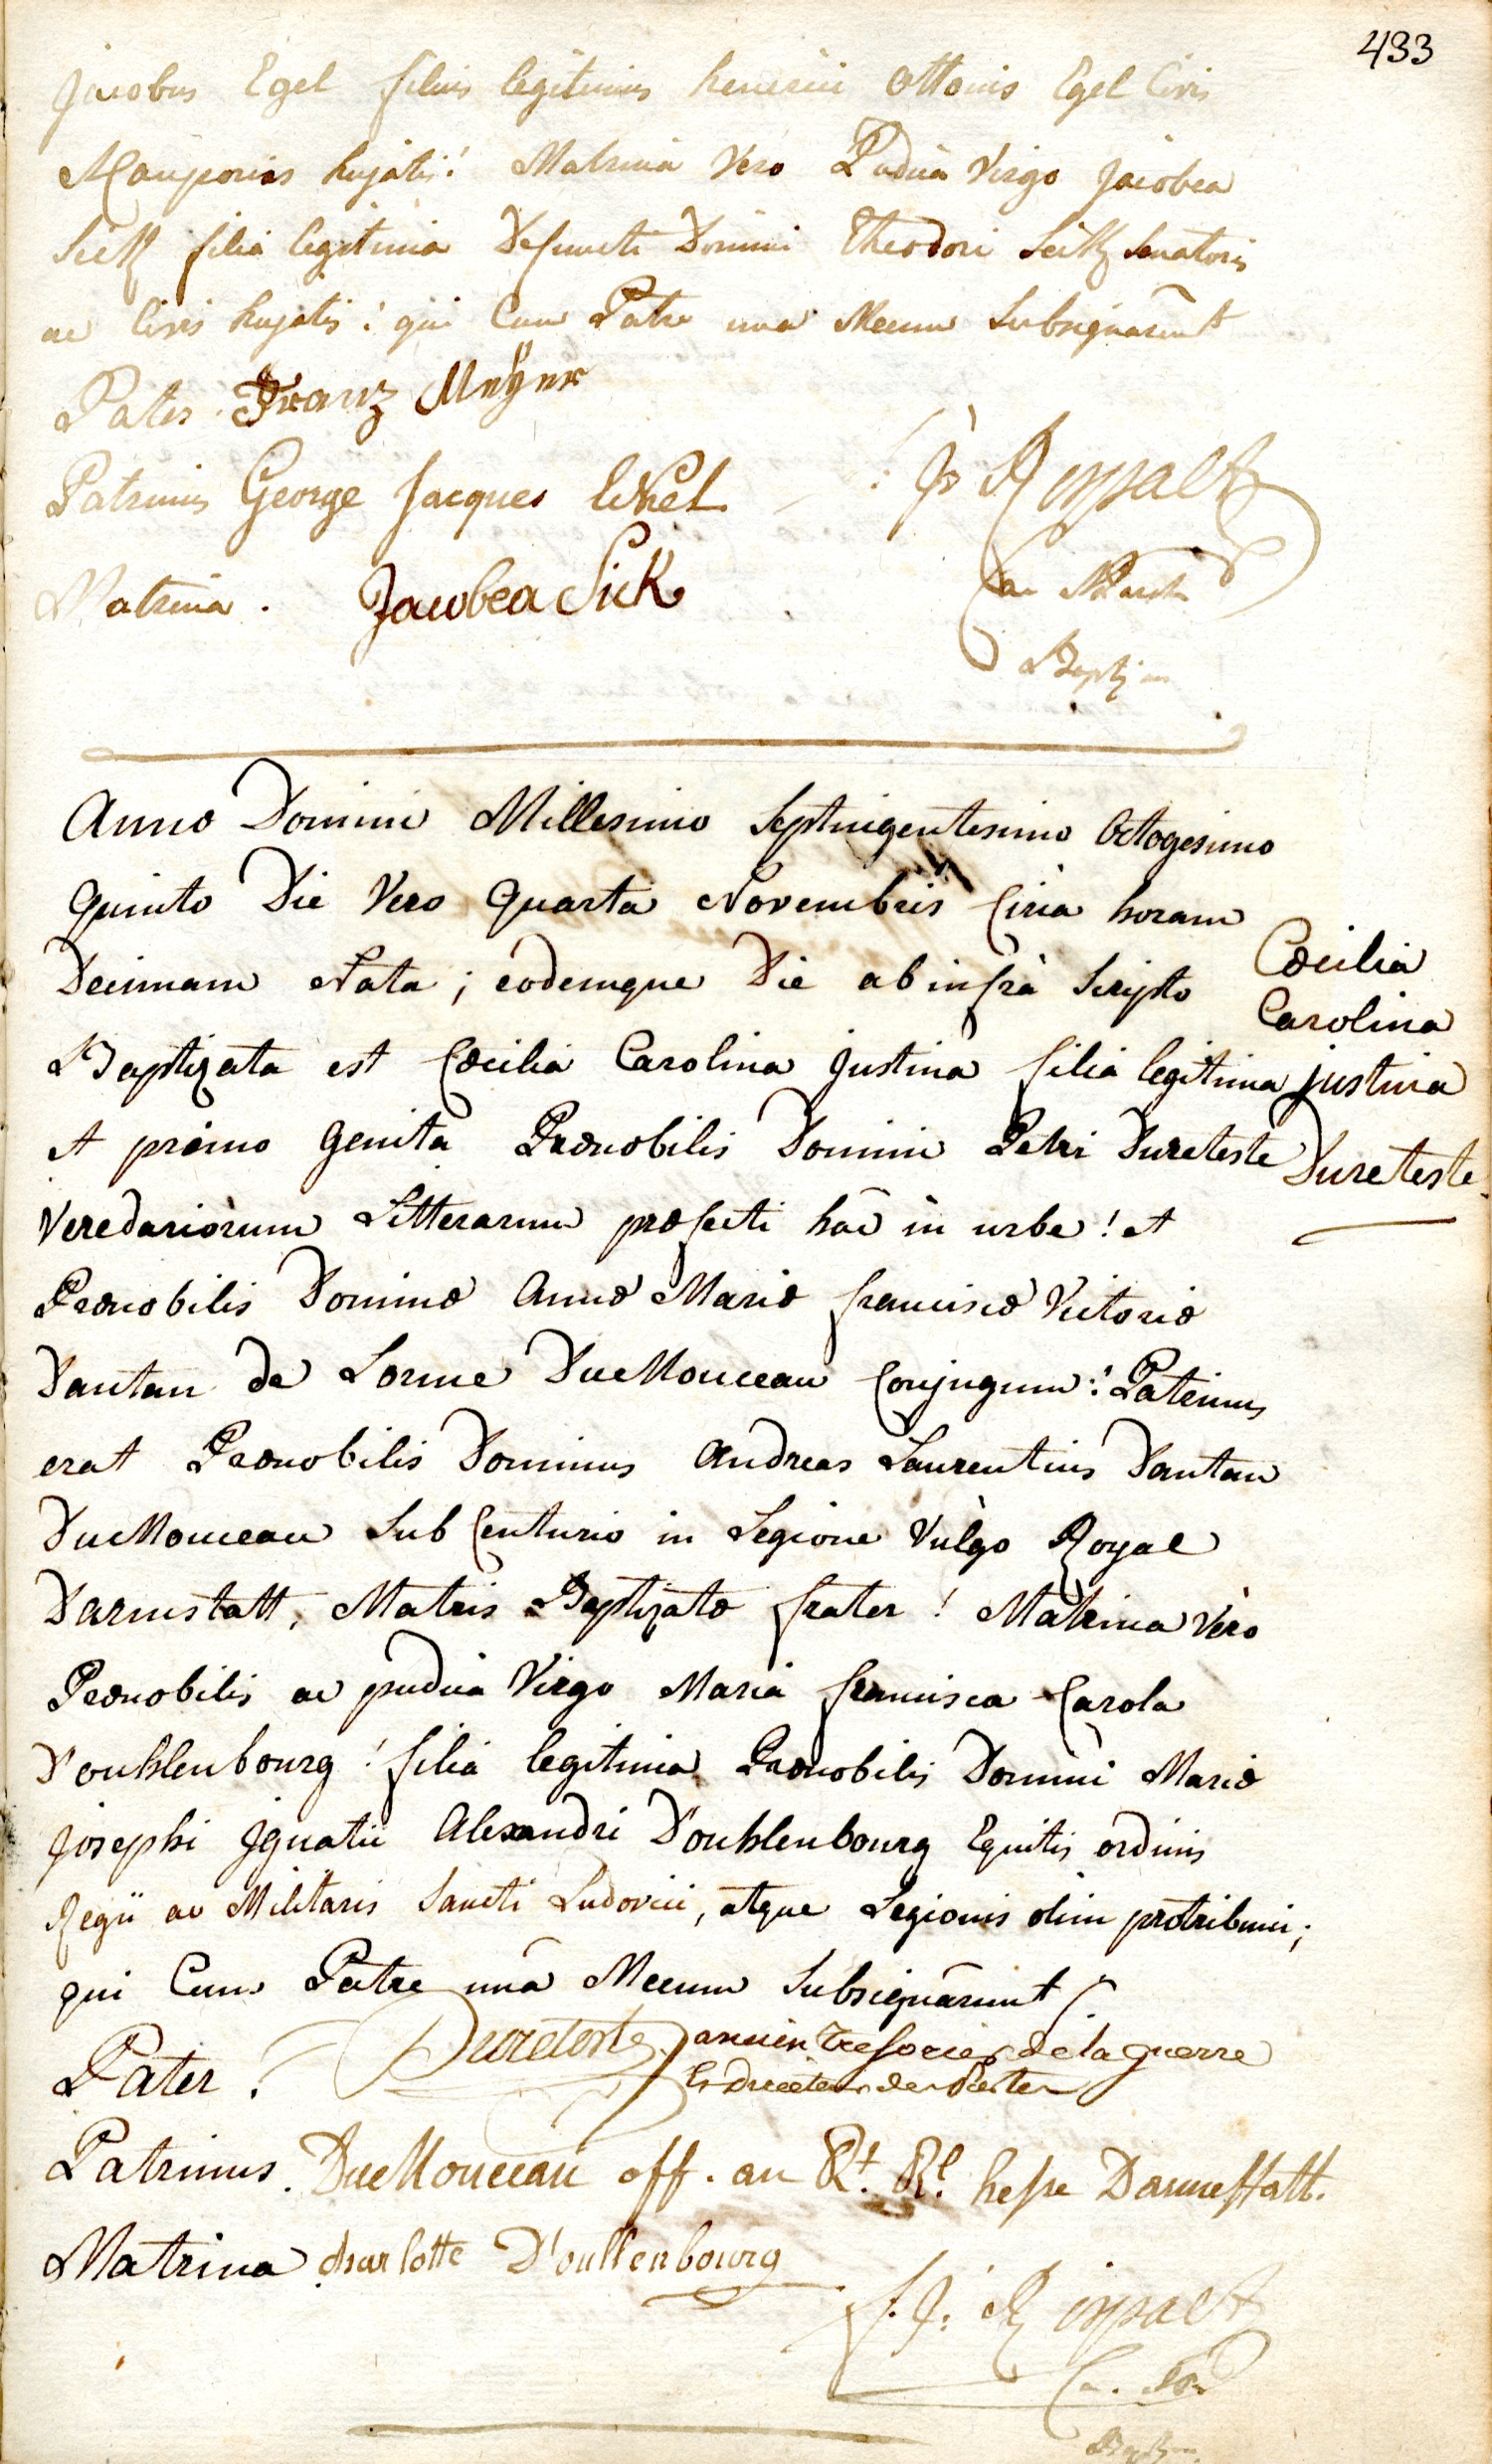 433
Jacobus Egel filius legitimus henrici Ottonis Egel Civis
hujatis! Matrina Vero Pudica Virgo Jacobea
Sick filia legitima Defuncti Domini Theodori Seitz Senatoris
ac Civis hujatis! qui Cum Patre una Mecum Subsignârunt
Pater. Franz Meÿer
Patrinus George Jacques
Matrina. Jacobea Sick
Anno Domini Millesimo Septingentesimo Octogesimo
Quinto Die Vero Quarta Novembris Circa horam
Decimam Nata; eodemque Die ab infrà Scripto
Baptizata est Cæcilia Carolina Justina filia legitima
et primo Genita Prænobilis Domini Petri Dureteste
Veredariorum Litterarum præfecti hâc in urbe! et
Prænobilis Dominæ Annæ Mariæ franciscæ Victoriæ
Dantan de Lorme DucMonceau Conjugum! Patrinus
erat Prænobilis Dominus Andreas Laurentius Dantan
DucMonceau Sub Centurio in Legione Vulgo Royal
Darmstatt, Matris Baptizatæ frater! Matrina Vero
Prænobilis ac pudica Virgo Maria francisca Carola
D'ouhlenbourg! filia legitima Prænobilis Domini Mariæ
Josephi Ignatii Alexandri D'ouhlenbourg Equitis ordinis
Regii ac Militaris Sancti Ludovici, atque Legionis olim protribuni;
qui Cum Patre unâ Mecum Subsignârunt
Cæcilia
Carolina
justina
Dureteste
Pater. Dureteste ancien tresorier de la guerre
et Directeur des Postes
Patrinus. DucMonceau off. au Rt. Rl. hesse Darmestatt.
Matrina charlotte D'oullenbourg